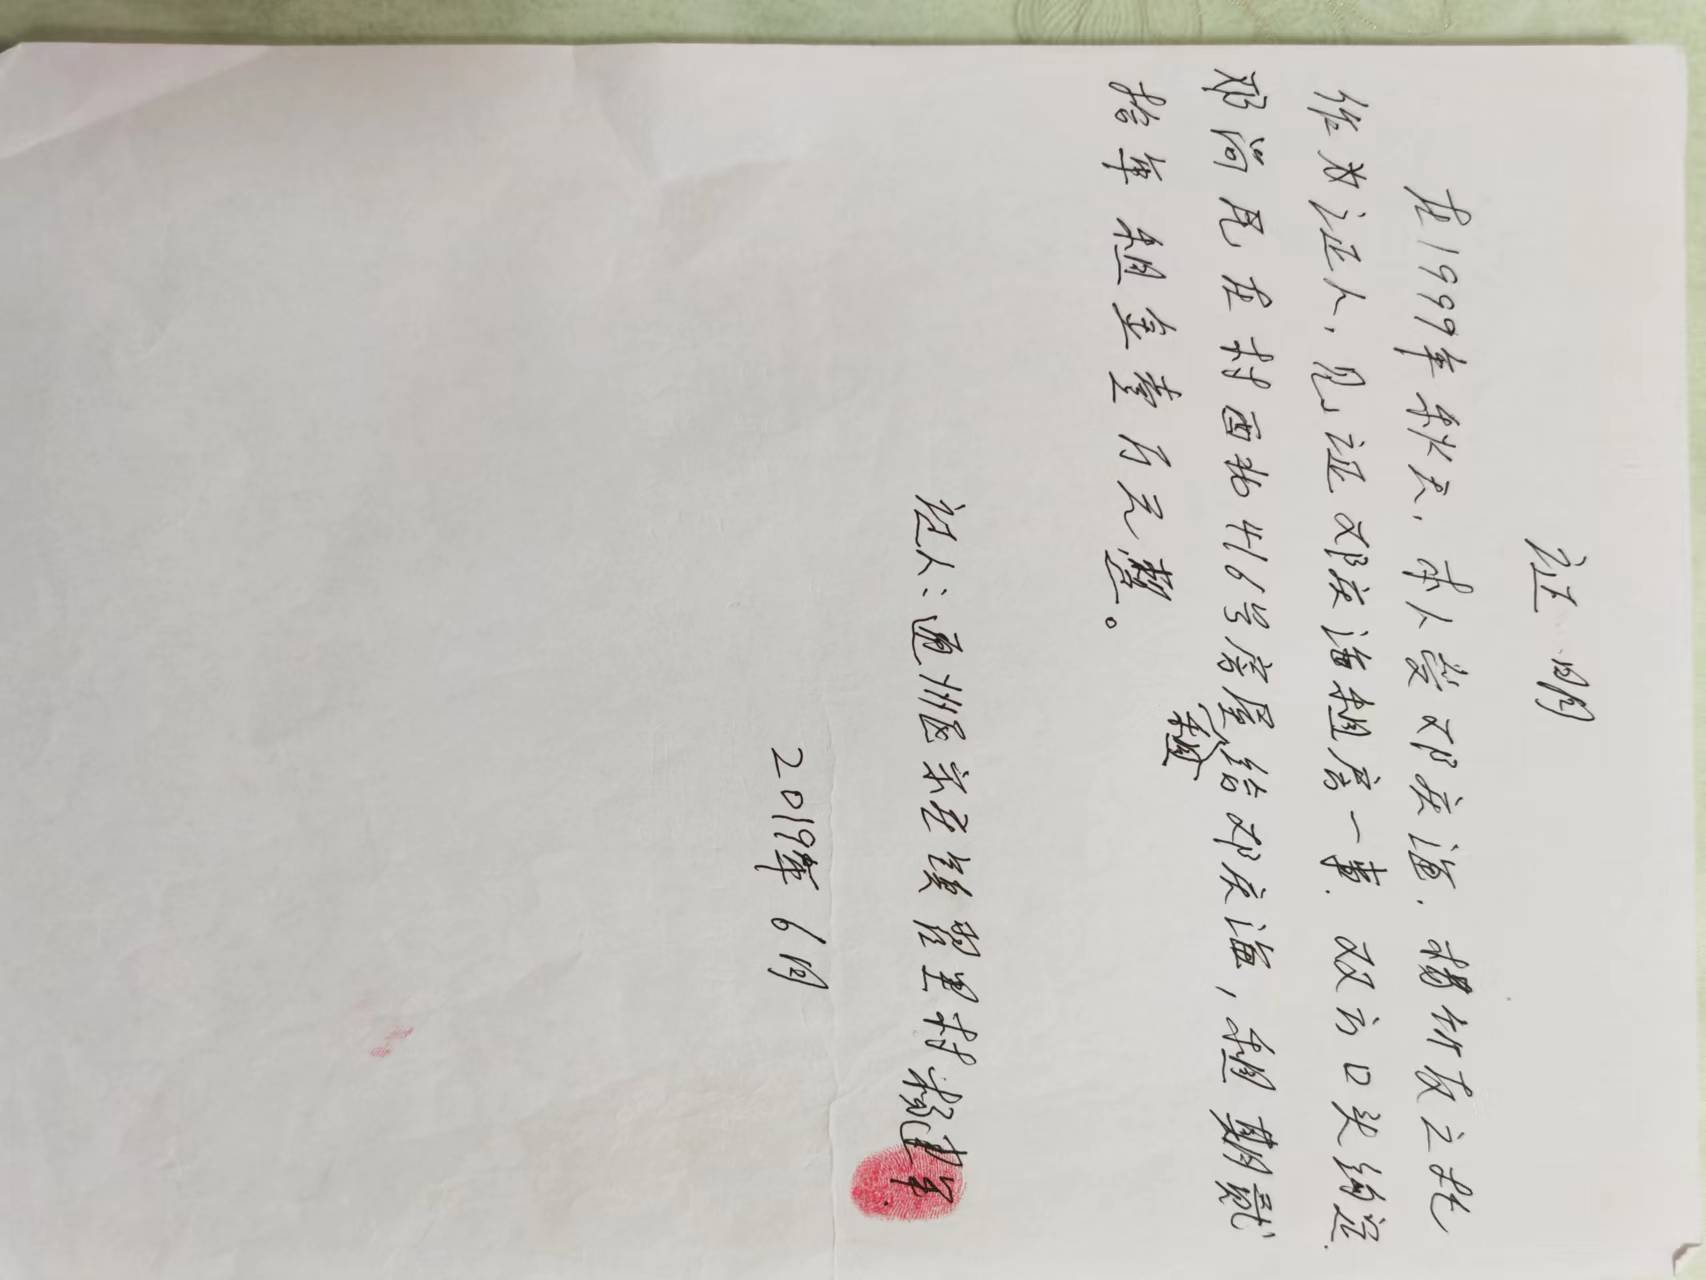 证明
在1999年秋天，本人受邓庆海、杨竹友之托
作为证人，见证邓庆海租房一事，双方口头约定
邓尚昆在村西北416号房屋租给邓庆海，租期贰
拾年租金壹万元整。
证人：通州区宋庄镇管里村 建军
2019年6月